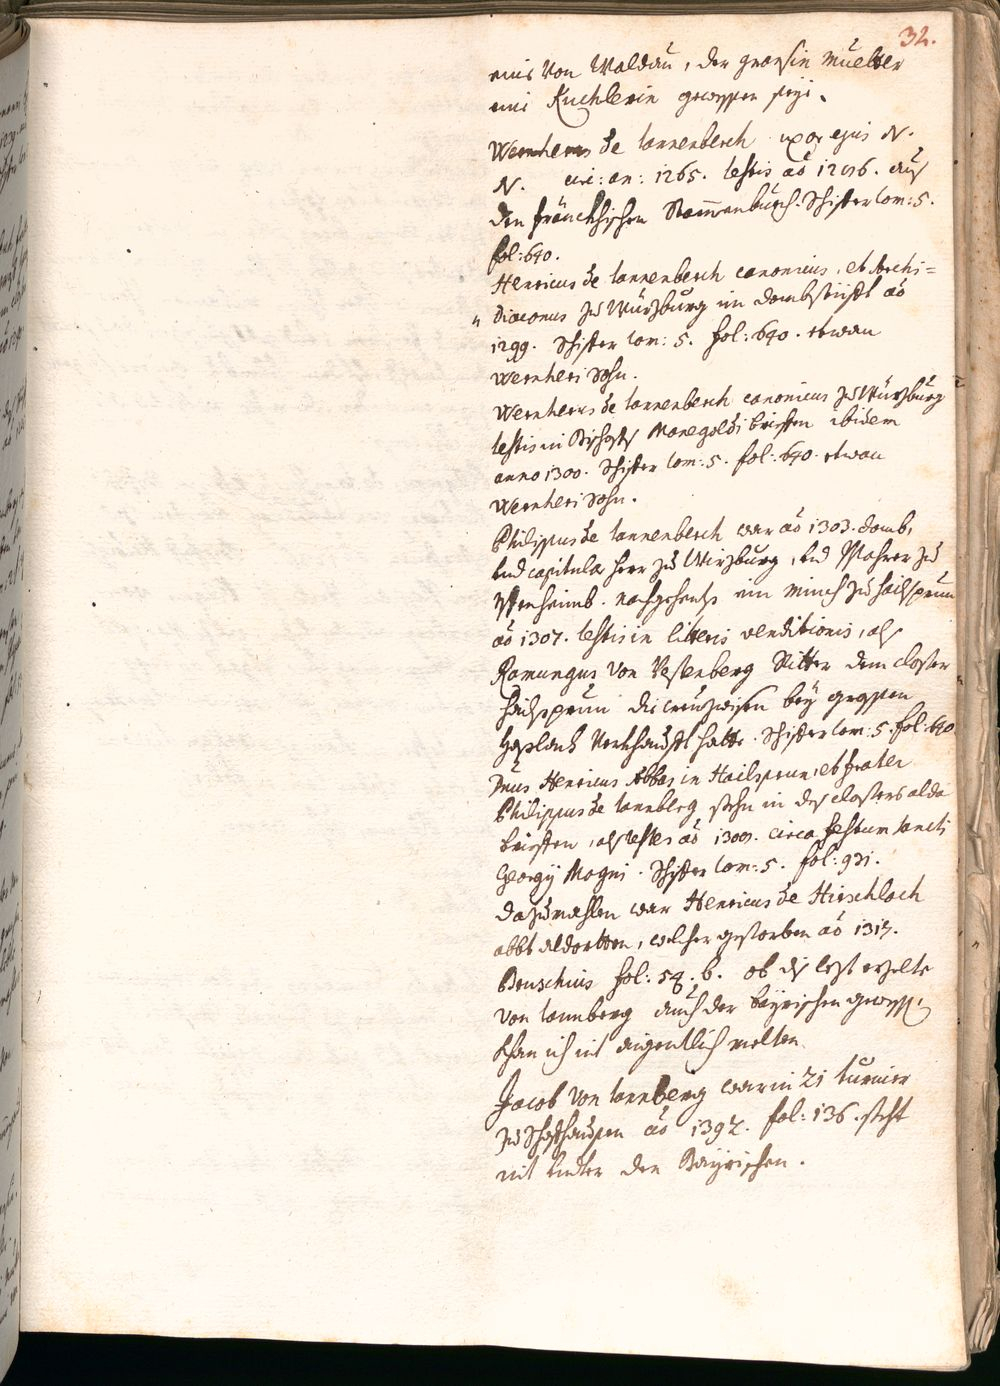 32.
eine von Waldau, der grossin muetter
eine Kuchlerin gewessen seye.
Wernherus de tannenberch uxor ejus N.
N. circ: an: 1265. testis aō 1296. auß
den fränckhischen Stammenbuch. Schifter tom: 5.
fol: 690.
Henricus de tannenberch canonicus, et Archi=
diaconus zu Würzburg im dombstüfft aō
1299. Schifter tom: 5. fol: 690. etwan
Wernheri Sohn.
Wernherus de tannenberch canonicus zu Würzburg
testis in Bischoffs Manegoldi brieffen ibidem
anno 1300. Schifter tom: 5. fol: 690. etwan
Wernheri Sohn.
Philippus de tannenberch war aō 1303. domb,
und capitular herr zu Würzburg, und Pfahrer zu
nachgehents ein münch zu hailsprunn
aō 1307. testis in litteris venditionis, alß
Ramungus von Vestenberg Ritter dem closter
hailsprunn die creutzwisen bey grossen
verkhaufft hatte. Schifter tom: 5. fol: 690
Henricus Abbas in Hailsprunn, et frater
Philippus de tannberg stehn in deß closters alda
brieffen, alß testes aō 1309. circa festum sancti
Georgÿ Magni. Schifter tom: 5. fol: 931.
dazumahlen war Henricus de Hirschlach
abbt aldortten, welcher gestorben aō 1317.
Bruschius fol: 54. b. ob diß lezt erzelte
von tannberg auch der bayrischen gewest,
khan ich nit aigentlich melten.
Jacob von tannberg war in 21 turnier
zu Schaffhausen aō 1392. fol: 136. steht
nit unter den Bayrischen.